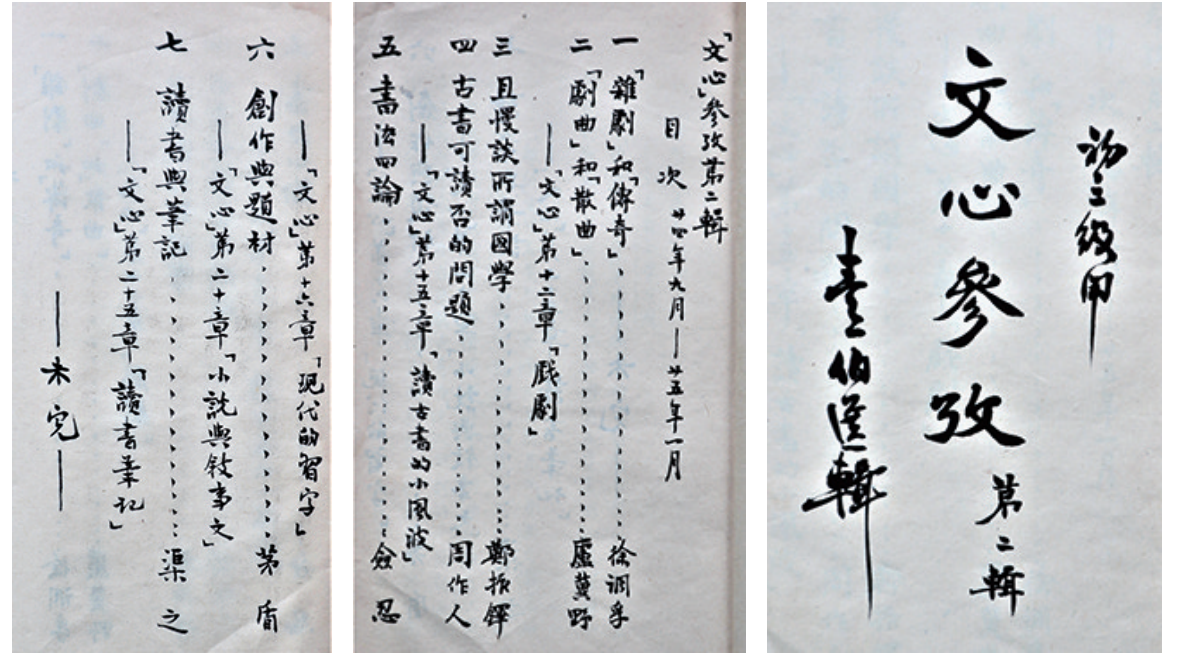 初三級用
文心參攷 第二輯
伯匡輯
「文心」參攷第二輯
目次 廿四年九月——廿五年一月
一 「雜劇」和「傳奇」............徐調孚
二 「劇曲」和「散曲」............盧冀野
——「文心」第十二章「戲劇」
三 且慢談所謂國學............鄭振鐸
四 古書可讀否的問題............周作人
——「文心」第十五章「讀古書的小風波」
五 書法四論............僉忍
——「文心」第十六章「現代的習字」
六 創作與題材............茅盾
——「文心」第二十章「小說與敘事文」
七 讀書與筆記............渠之
——「文心」第二十五章「讀書筆記」
——未完——